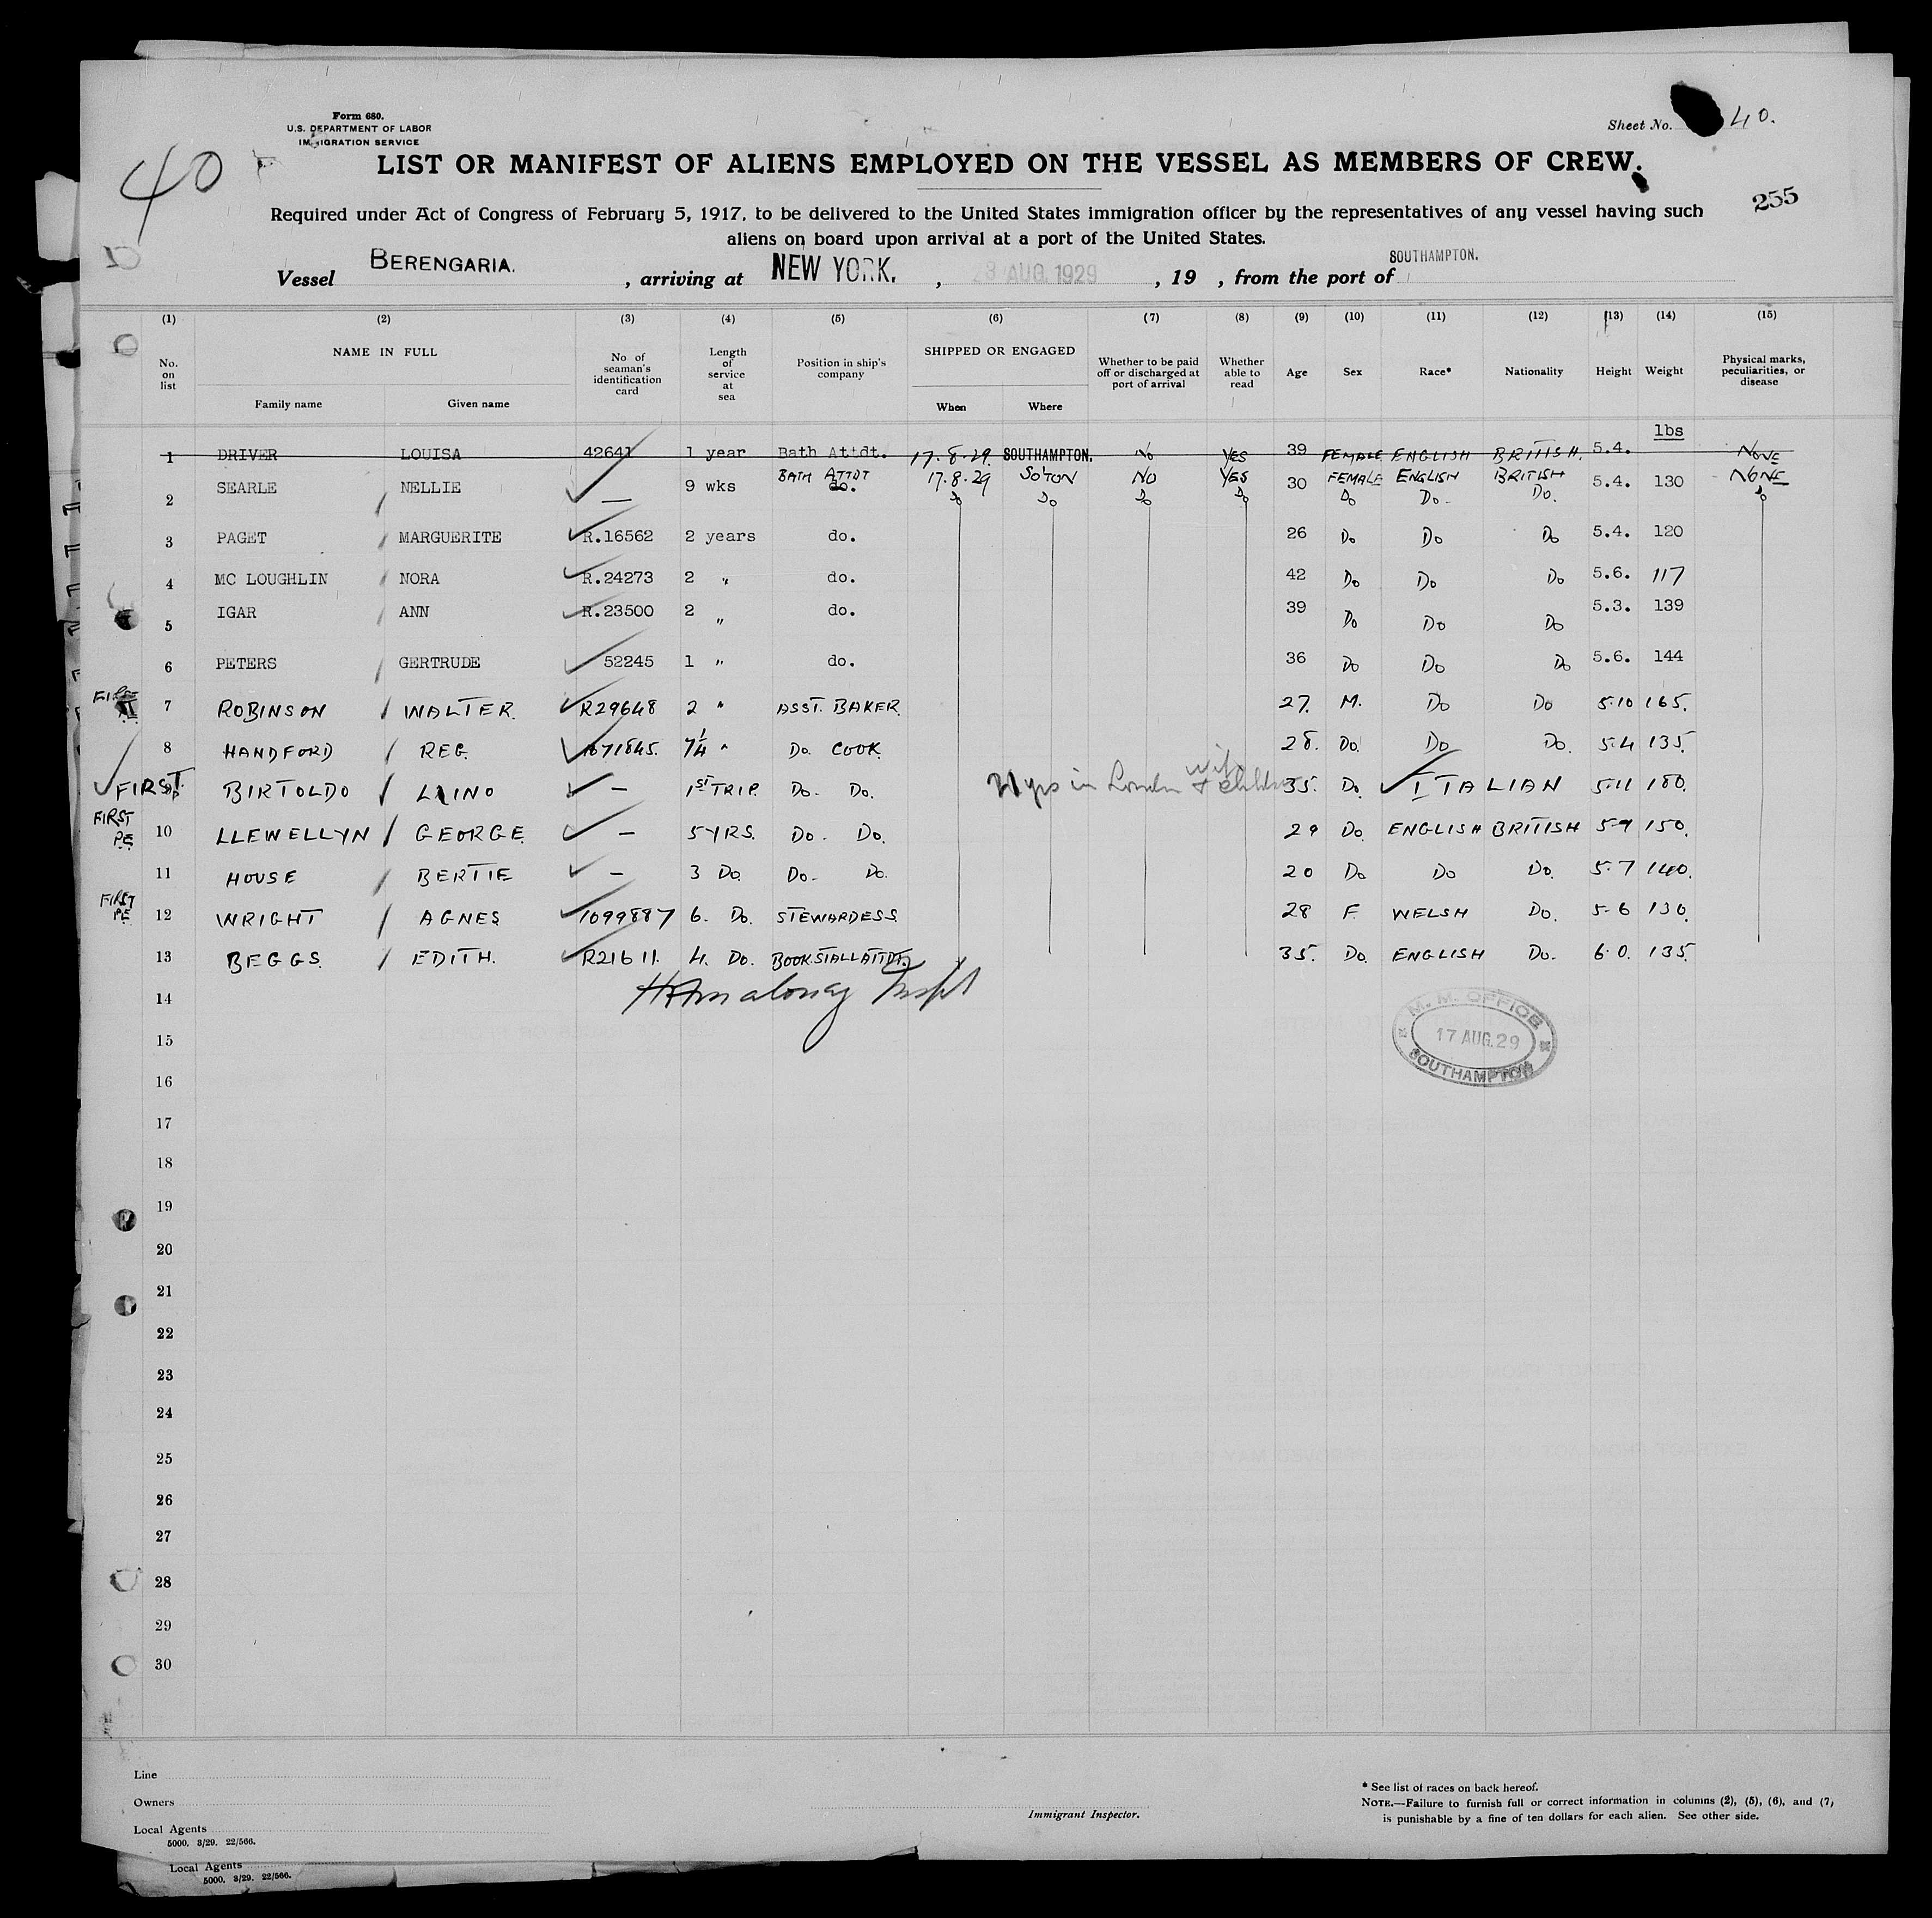 Form 680.
U.S. DEPARTMENT OF LABOR
IMMIGRATION SERVICE
Sheet No. 40.
40
LIST OR MANIFEST OF ALIENS EMPLOYED ON THE VESSEL AS MEMBERS OF CREW.
255
Required under Act of Congress of February 5, 1917, to be delivered to the United States immigration officer by the representatives of any vessel having such
aliens on board upon arrival at a port of the United States.
Vessel BERENGARIA. , arriving at NEW YORK. , 23 AUG. 1929 , 19 , from the port of SOUTHAMPTON.
(1) (2) (3) (4) (5) (6) (7) (8) (9) (10) (11) (12) (13) (14) (15)
No. on list NAME IN FULL Family name Given name No of seaman's identification card Length of service at sea Position in ship's company SHIPPED OR ENGAGED When Where Whether to be paid off or discharged at port of arrival Whether able to read Age Sex Race* Nationality Height Weight Physical marks, peculiarities, or disease
lbs
1 DRIVER LOUISA 42641 1 year Bath Attdt. 17.8.29. SOUTHAMPTON. No YES 39 FEMALE ENGLISH BRITISH. 5.4. NONE
BATH ATTDT 17.8.29 SO'TON NO YES FEMALE ENGLISH BRITISH NONE
2 SEARLE NELLIE — 9 wks do. Do Do Do Do 30 Do Do. Do. 5.4. 130 Do
3 PAGET MARGUERITE R.16562 2 years do. 26 Do Do Do 5.4. 120
4 MC LOUGHLIN NORA R.24273 2 " do. 42 Do Do Do 5.6. 117
5 IGAR ANN R.23500 2 " do. 39 Do Do Do 5.3. 139
6 PETERS GERTRUDE 52245 1 " do. 36 Do Do Do 5.6. 144
7 ROBINSON WALTER. R29648 2 " ASST. BAKER. 27. M. Do Do 5.10 165.
8 HANDFORD REG. 1071845. 7¼ " Do. COOK 28. Do. Do Do. 5.4 135.
FIRST. BIRTOLDO LAINO — 1ST TRIP. Do. Do. yrs in London wife + children 35. Do. ITALIAN 5.11 180.
FIRST PE 10 LLEWELLYN GEORGE. — 5 YRS. Do. Do. 29 Do. ENGLISH BRITISH 5.9 150.
11 HOUSE BERTIE — 3 Do. Do. Do. 20 Do Do Do. 5.7 140.
FIRST PE 12 WRIGHT AGNES 1099887 6. Do. STEWARDESS 28 F. WELSH Do. 5.6 130.
13 BEGGS. EDITH. R21611. 4. Do. BOOKSTALL ATTDT. 35. Do. ENGLISH Do. 6.0. 135.
14
M.M. OFFICE
17 AUG. 29
SOUTHAMPTON
15
16
17
18
19
20
21
22
23
24
25
26
27
28
29
30
Line
Owners
Local Agents
5000. 3/29. 22/566.
Immigrant Inspector.
* See list of races on back hereof.
NOTE.—Failure to furnish full or correct information in columns (2), (5), (6), and (7)
is punishable by a fine of ten dollars for each alien. See other side.
Local Agents
5000. 3/29. 22/566.